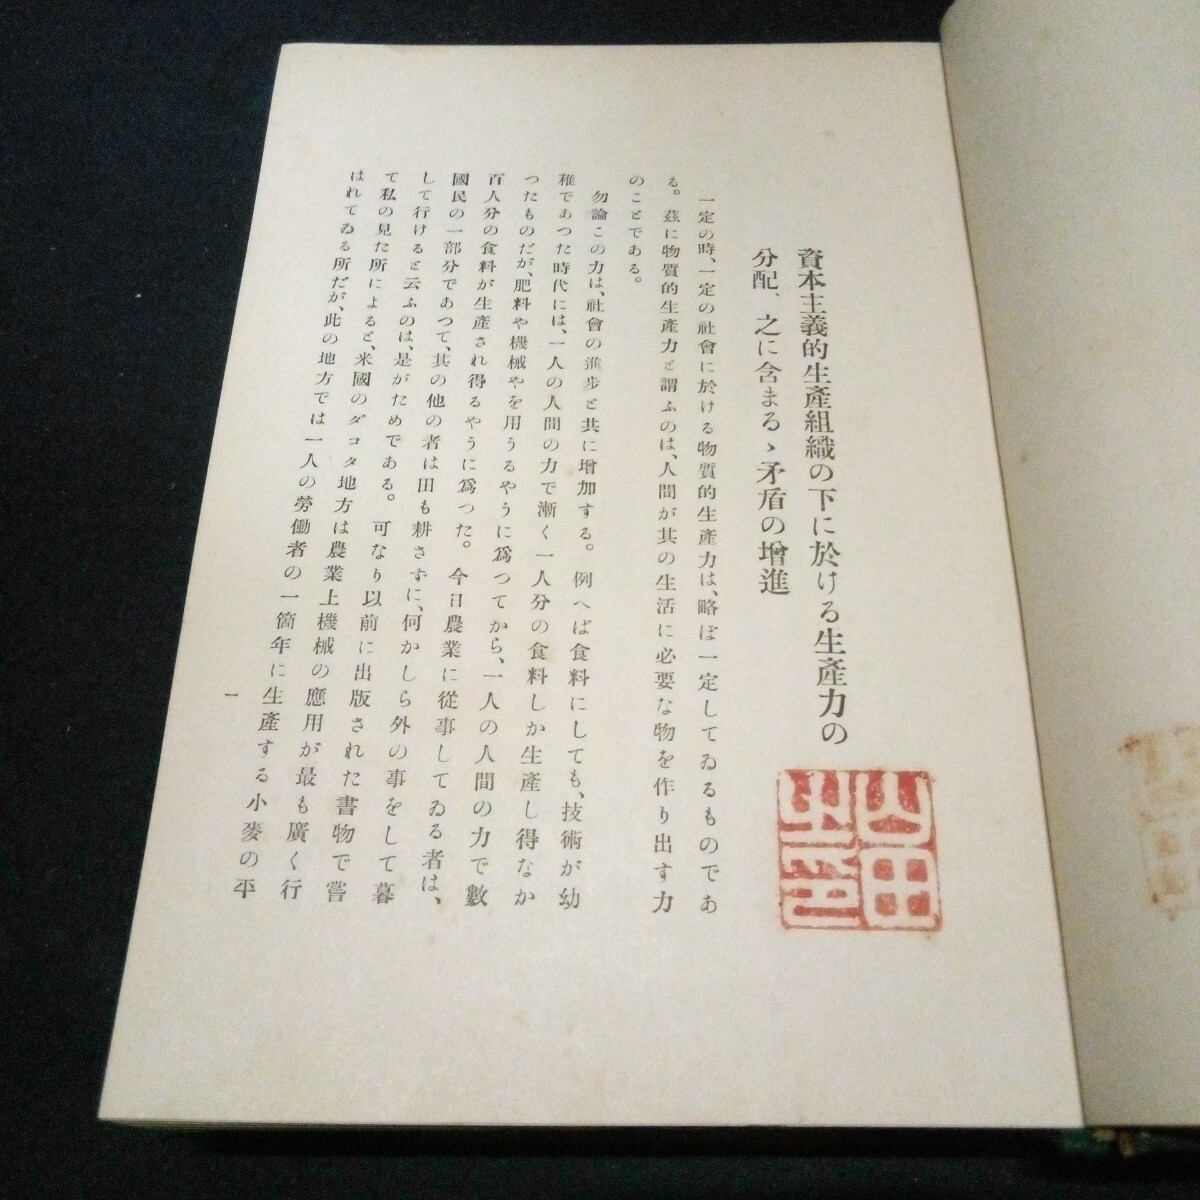 資本主義的生產組織の下に於ける生產力の
分配、之に含まるゝ矛盾の增進
一定の時、一定の社會に於ける物質的生產力は、略ぼ一定してゐるものであ
る。茲に物質的生產力と謂ふのは、人間が其の生活に必要な物を作り出す力
のことである。
勿論この力は、社會の進步と共に增加する。例へば食料にしても、技術が幼
稚であつた時代には、一人の人間の力で漸く一人分の食料しか生產し得なか
つたものだが、肥料や機械やを用うるやうに爲つてから、一人の人間の力で數
百人分の食料が生產され得るやうに爲つた。今日農業に從事してゐる者は、
國民の一部分であつて、其の他の者は田も耕さずに、何かしら外の事をして暮
して行けると云ふのは、是がためである。可なり以前に出版された書物で嘗
て私の見た所によると、米國のダコタ地方は農業上機械の應用が最も廣く行
はれてゐる所だが、此の地方では一人の勞働者の一箇年に生產する小麥の平
一
山田